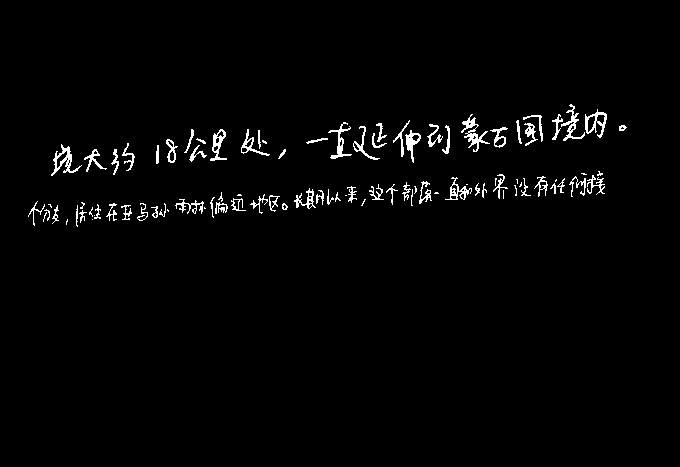 境大约18公里处，一直延伸到蒙古国境内。
个分支，居住在亚马孙雨林偏远地区。长期以来，这个部落一直和外界没有任何接